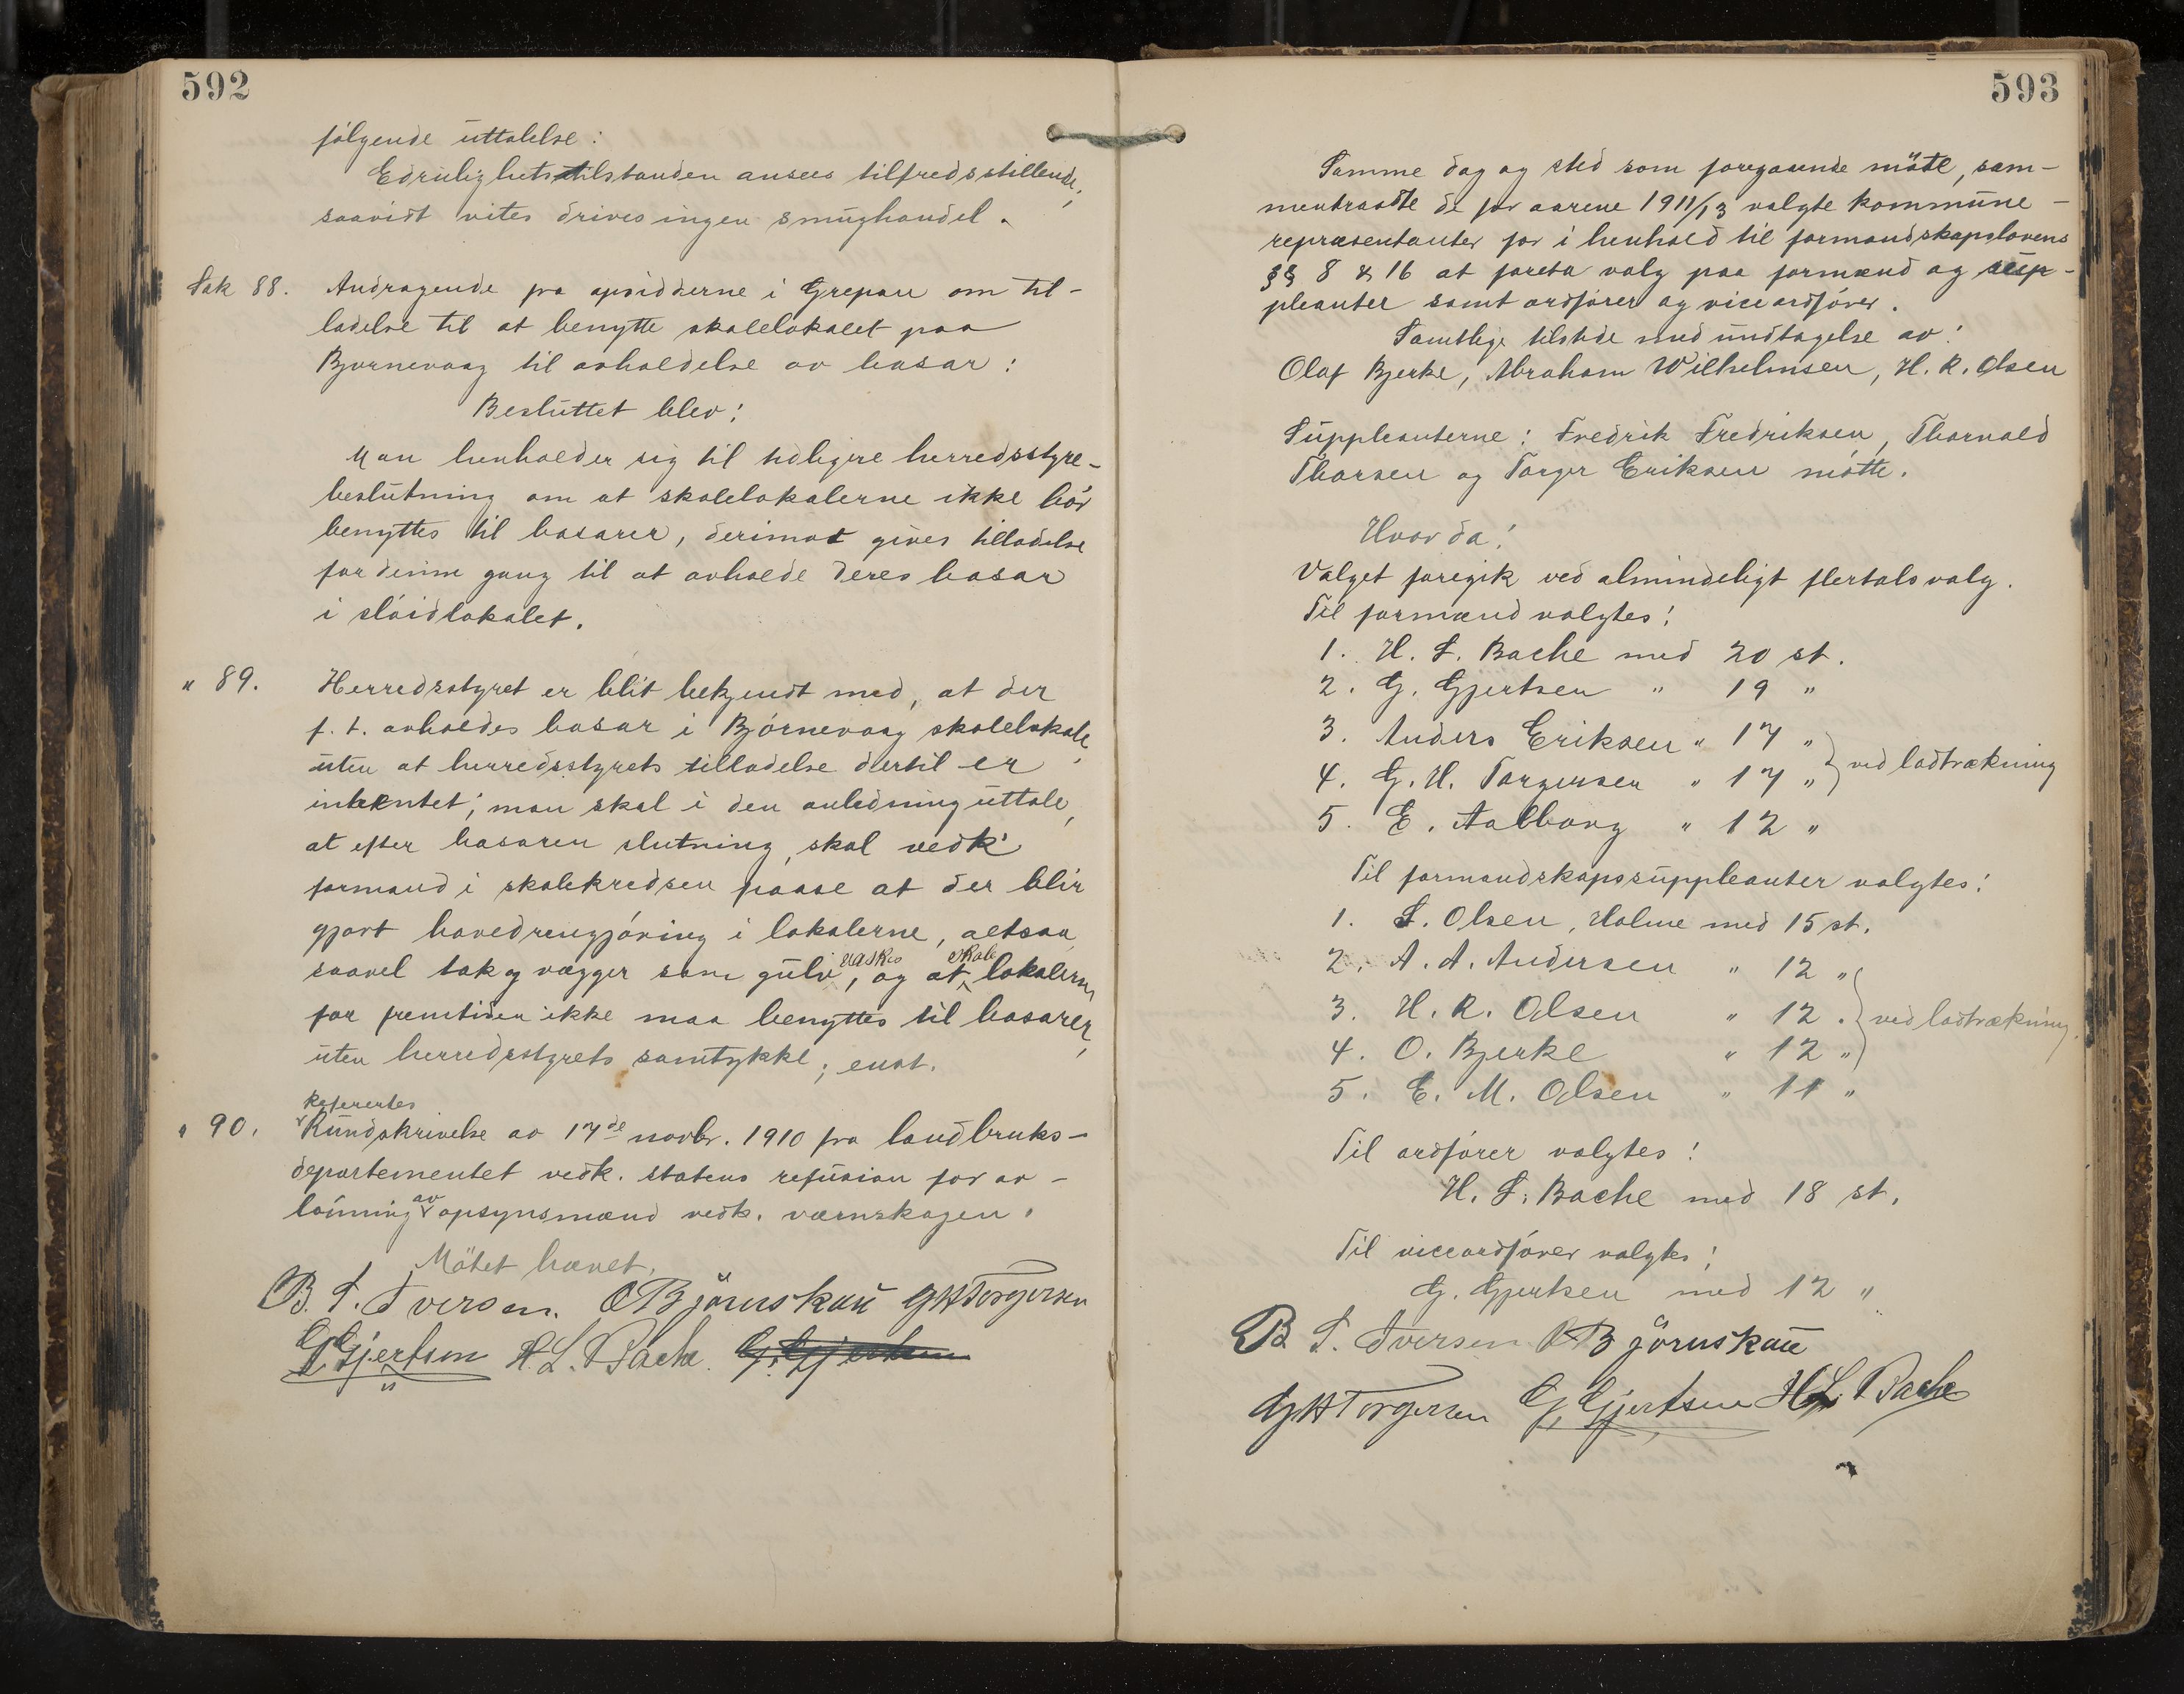 592
følgende uttalelse:
Edruelighetstilstanden ansees tilfredsstillende,
saavidt vites drives ingen smughandel.
Sak 88. Andragende fra opsidderne i Grepan om til-
ladelse til at benytte skolelokalet paa
Bjørnevaag til avholdelse av basar:
Besluttet blev:
Man henholder sig til tidligere herredsstyre-
beslutning om at skolelokalerne ikke bør
benyttes til basarer, derimot gives tilladelse
for denne gang til at avholde deres basar
i sløidlokalet.
" 89. Herredsstyret er blit bekjendt med, at der
f. t. avholdes basar i Bjørnevaag skolelokale,
uten at herredsstyrets tilladelse dertil er
inhentet; man skal i den anledning uttale,
at efter basaren slutning, skal vedk.
formand i skolekredsen paase at der blir
gjort hovedrengjøring i lokalerne, altsaa
saavel tak og vægger som gulv vaskes, og at skole lokalerne
for fremtiden ikke maa benyttes til basarer,
uten herredsstyrets samtykke; enst.
" 90. Referertes Rundskrivelse av 17de novbr. 1910 fra landbruks-
departementet vedk. statens refusion for av-
lønning av opsynsmænd vedk. værnskogen.
Møtet hævet.
B. T. Iversen. O Bjørnskau GHTorgersen
G Gjertsen H. L. Bache. G. Gjertsen
593
Samme dag og sted som foregaaende møte, sam-
mentraadte de for aarene 1911/13 valgte kommune-
repræsentanter for i henhold til formandskapslovens
§§ 8 & 16 at foreta valg paa formænd og sup-
pleanter samt ordfører og viceordfører.
Samtlige tilstede med undtagelse av:
Olaf Bjerke, Abraham Wilhelmsen, H. R. Olsen
Suppleanterne: Fredrik Fredriksen, Thorvald
Thorsen og Torger Eriksen møtte.
Hvorda:
Valget foregik ved almindeligt flertalsvalg.
Til formænd valgtes:
1. H. L. Bache med 20 st.
2. G. Gjertsen " 19 "
3. Anders Eriksen " 17 "
4. G. H. Torgersen " 17 " } ved lodtrækning
5. E. Aalborg " 12 "
Til formandskapssuppleanter valgtes:
1. L. Olsen, Holme med 15 st.
2. A. A. Andersen " 12 "
3. H. R. Olsen " 12 . } ved lodtrækning.
4. O. Bjerke " 12 "
5. E. M. Olsen " 11 "
Til ordfører valgtes:
H. L. Bache med 18 st.
Til viceordfører valgtes:
G. Gjertsen med 12 "
B T. Iversen O Bjørnskau
GHTorgersen G. Gjertsen H. L. Bache